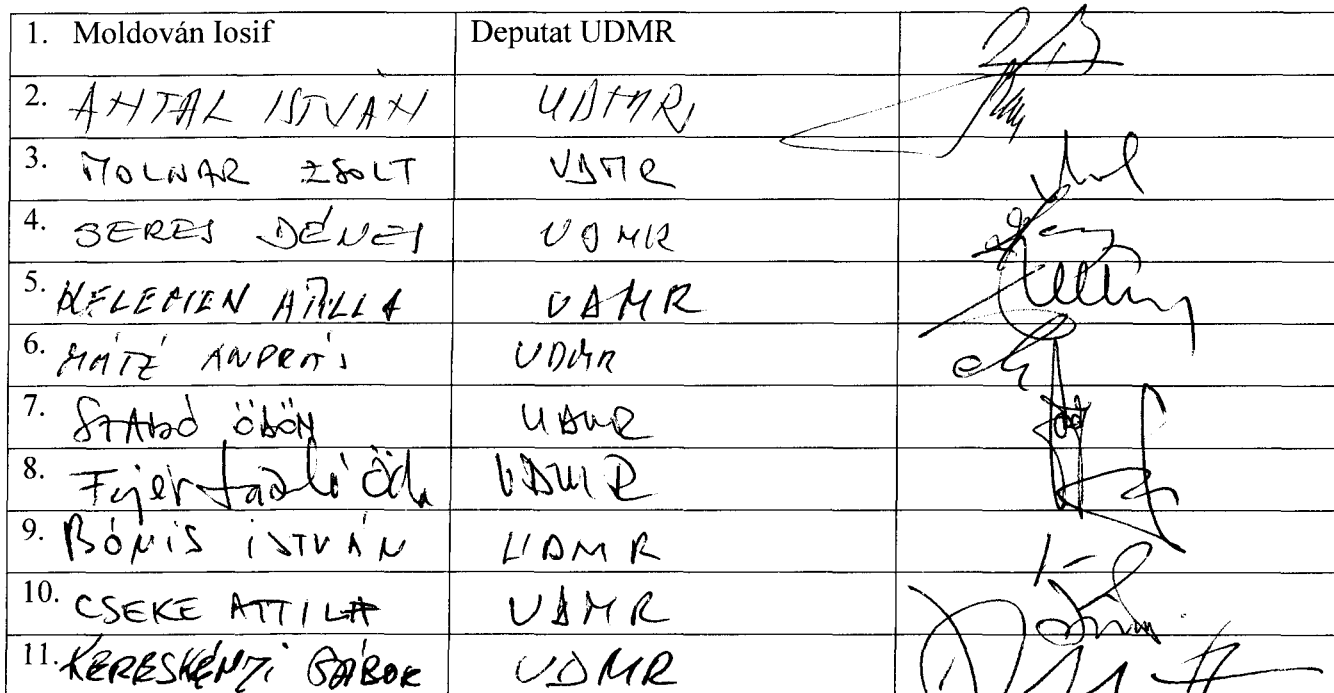 1. Moldován Iosif Deputat UDMR
2. ANTAL ISTVÁN UDMR
3. MOLNAR ZSOLT UDMR
4. SERES DÉNES UDMR
5. KELEMEN ATILLA UDMR
6. MÁTÉ ANDRÁS UDMR
7. SZABÓ ÖDÖN UDMR
8. Fejér László Öd UDMR
9. BÓNIS ISTVÁN UDMR
10. CSEKE ATTILA UDMR
11. KERESKÉNYI GÁBOR UDMR